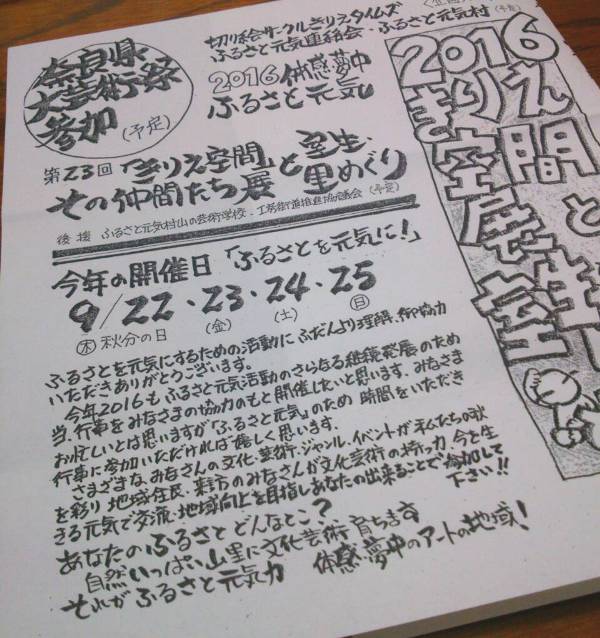 奈良県
大芸術祭
参加
(予定)
切り絵サークルきりえタイムズ
ふるさと元気連絡会・ふるさと元気村
(予定)
2016体感夢中
ふるさと元気
第23回「きりえ空間」と室生・
その仲間たち展 里めぐり
後援 ふるさと元気村山の芸術学校・工芸街道推進協議会(予定)
今年の開催日「ふるさとを元気に!」
9/22・23・24・25
(木)秋分の日 (金) (土) (日)
ふるさとを元気にするための活動にふだんより理解、御協力
いただきありがとうございます。
今年2016もふるさと元気活動のさらなる継続発展のため
当、行事をみなさまの協力のもと開催したいと思います、みなさま
お忙しいとは思いますが「ふるさと元気」のため時間をいただき
行事に参加いただければ嬉しく思います。
さまざまな、みなさんの文化、芸術、ジャンル、イベントが私たちの秋
を彩り地域住民、来訪のみなさんが文化芸術の持つ力、今を生
きる元気で交流・地域向上を目指しあなたの出来ることで参加して
下さい!!
あなたのふるさとどんなとこ?
自然いっぱい山里に文化芸術育ちます
それがふるさと元気力 体感夢中のアートの地域!
2016
きりえ
空間
と
展
室生